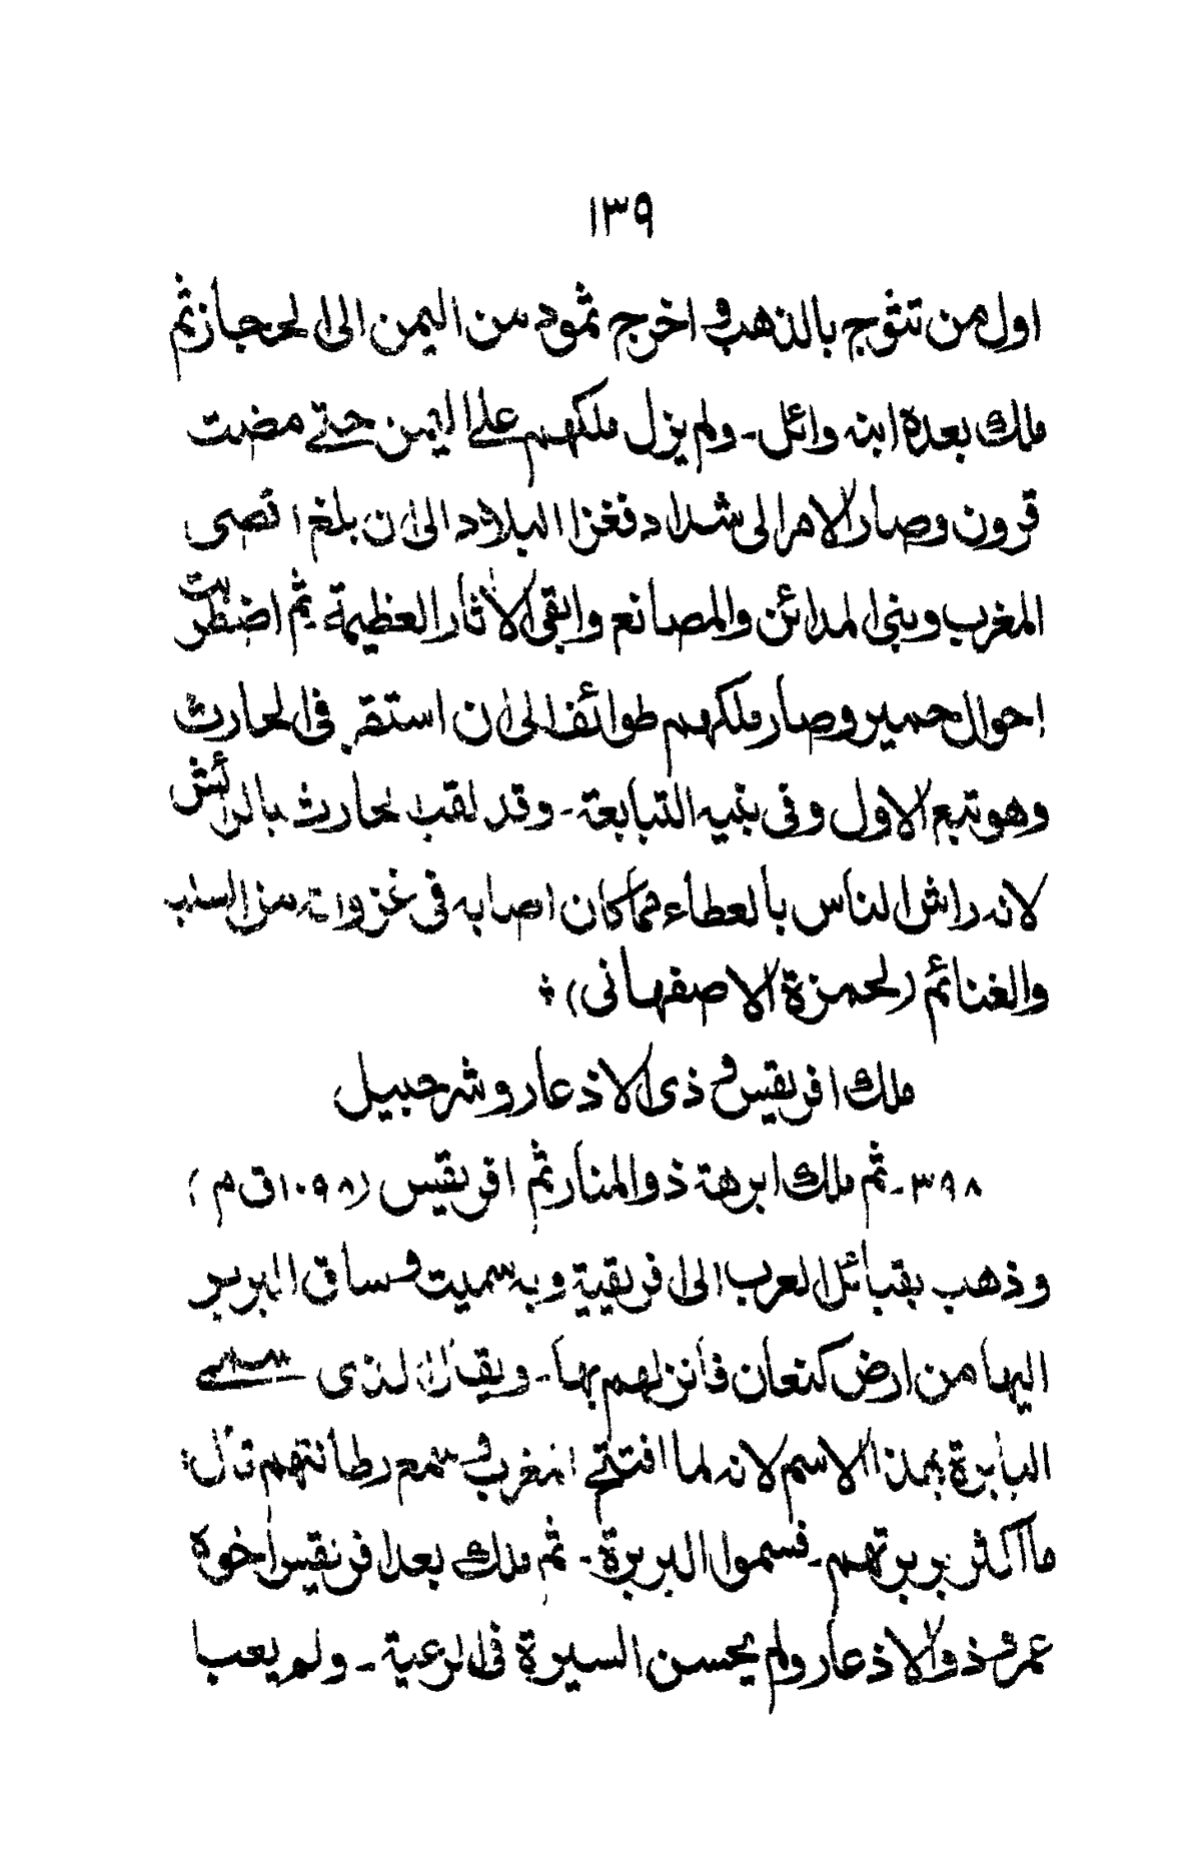 ١٣٩
اول من تتوج بالذهب و اخرج ثمود من اليمن الى الحجاز ثم
ملك بعده ابنه وائل - ولم يزل ملكهم على اليمن حتى مضت
قرون وصار الامر الى شداد فغزا البلاد الى ان بلغ اقصى
المغرب وبنى المدائن والمصانع وابقى الاثار العظيمة - ثم اضطربت
احوال حمير وصار ملكهم طوائف الى ان استقر فى الحارث
وهو تبع الاول وفى بنيه التبابعة - وقد لقب الحارث بالرائش
لانه راش الناس بالعطاء مما كان اصابه فى غزواته من السلب
والغنائم (لحمزة الاصفهانى) *
ملك افريقيس و ذى الاذعار و شرحبيل
٣٩٨ - ثم ملك ابرهة ذو المنار ثم افريقيس (١٠٩٨ ق م)
وذهب بقبائل العرب الى افريقية وبه سميت و ساق البربر
اليها من ارض كنعان فانزلهم بها - ويقال انه الذى سمى
البابرة بهذا الاسم لانه لما افتتح المغرب و سمع رطانتهم قال:
ما اكثر بربرتهم - فسموا البربرة - ثم ملك بعد افريقيس اخوه
عمرو ذو الاذعار ولم يحسن السيرة فى الرعية - ولم يعبا